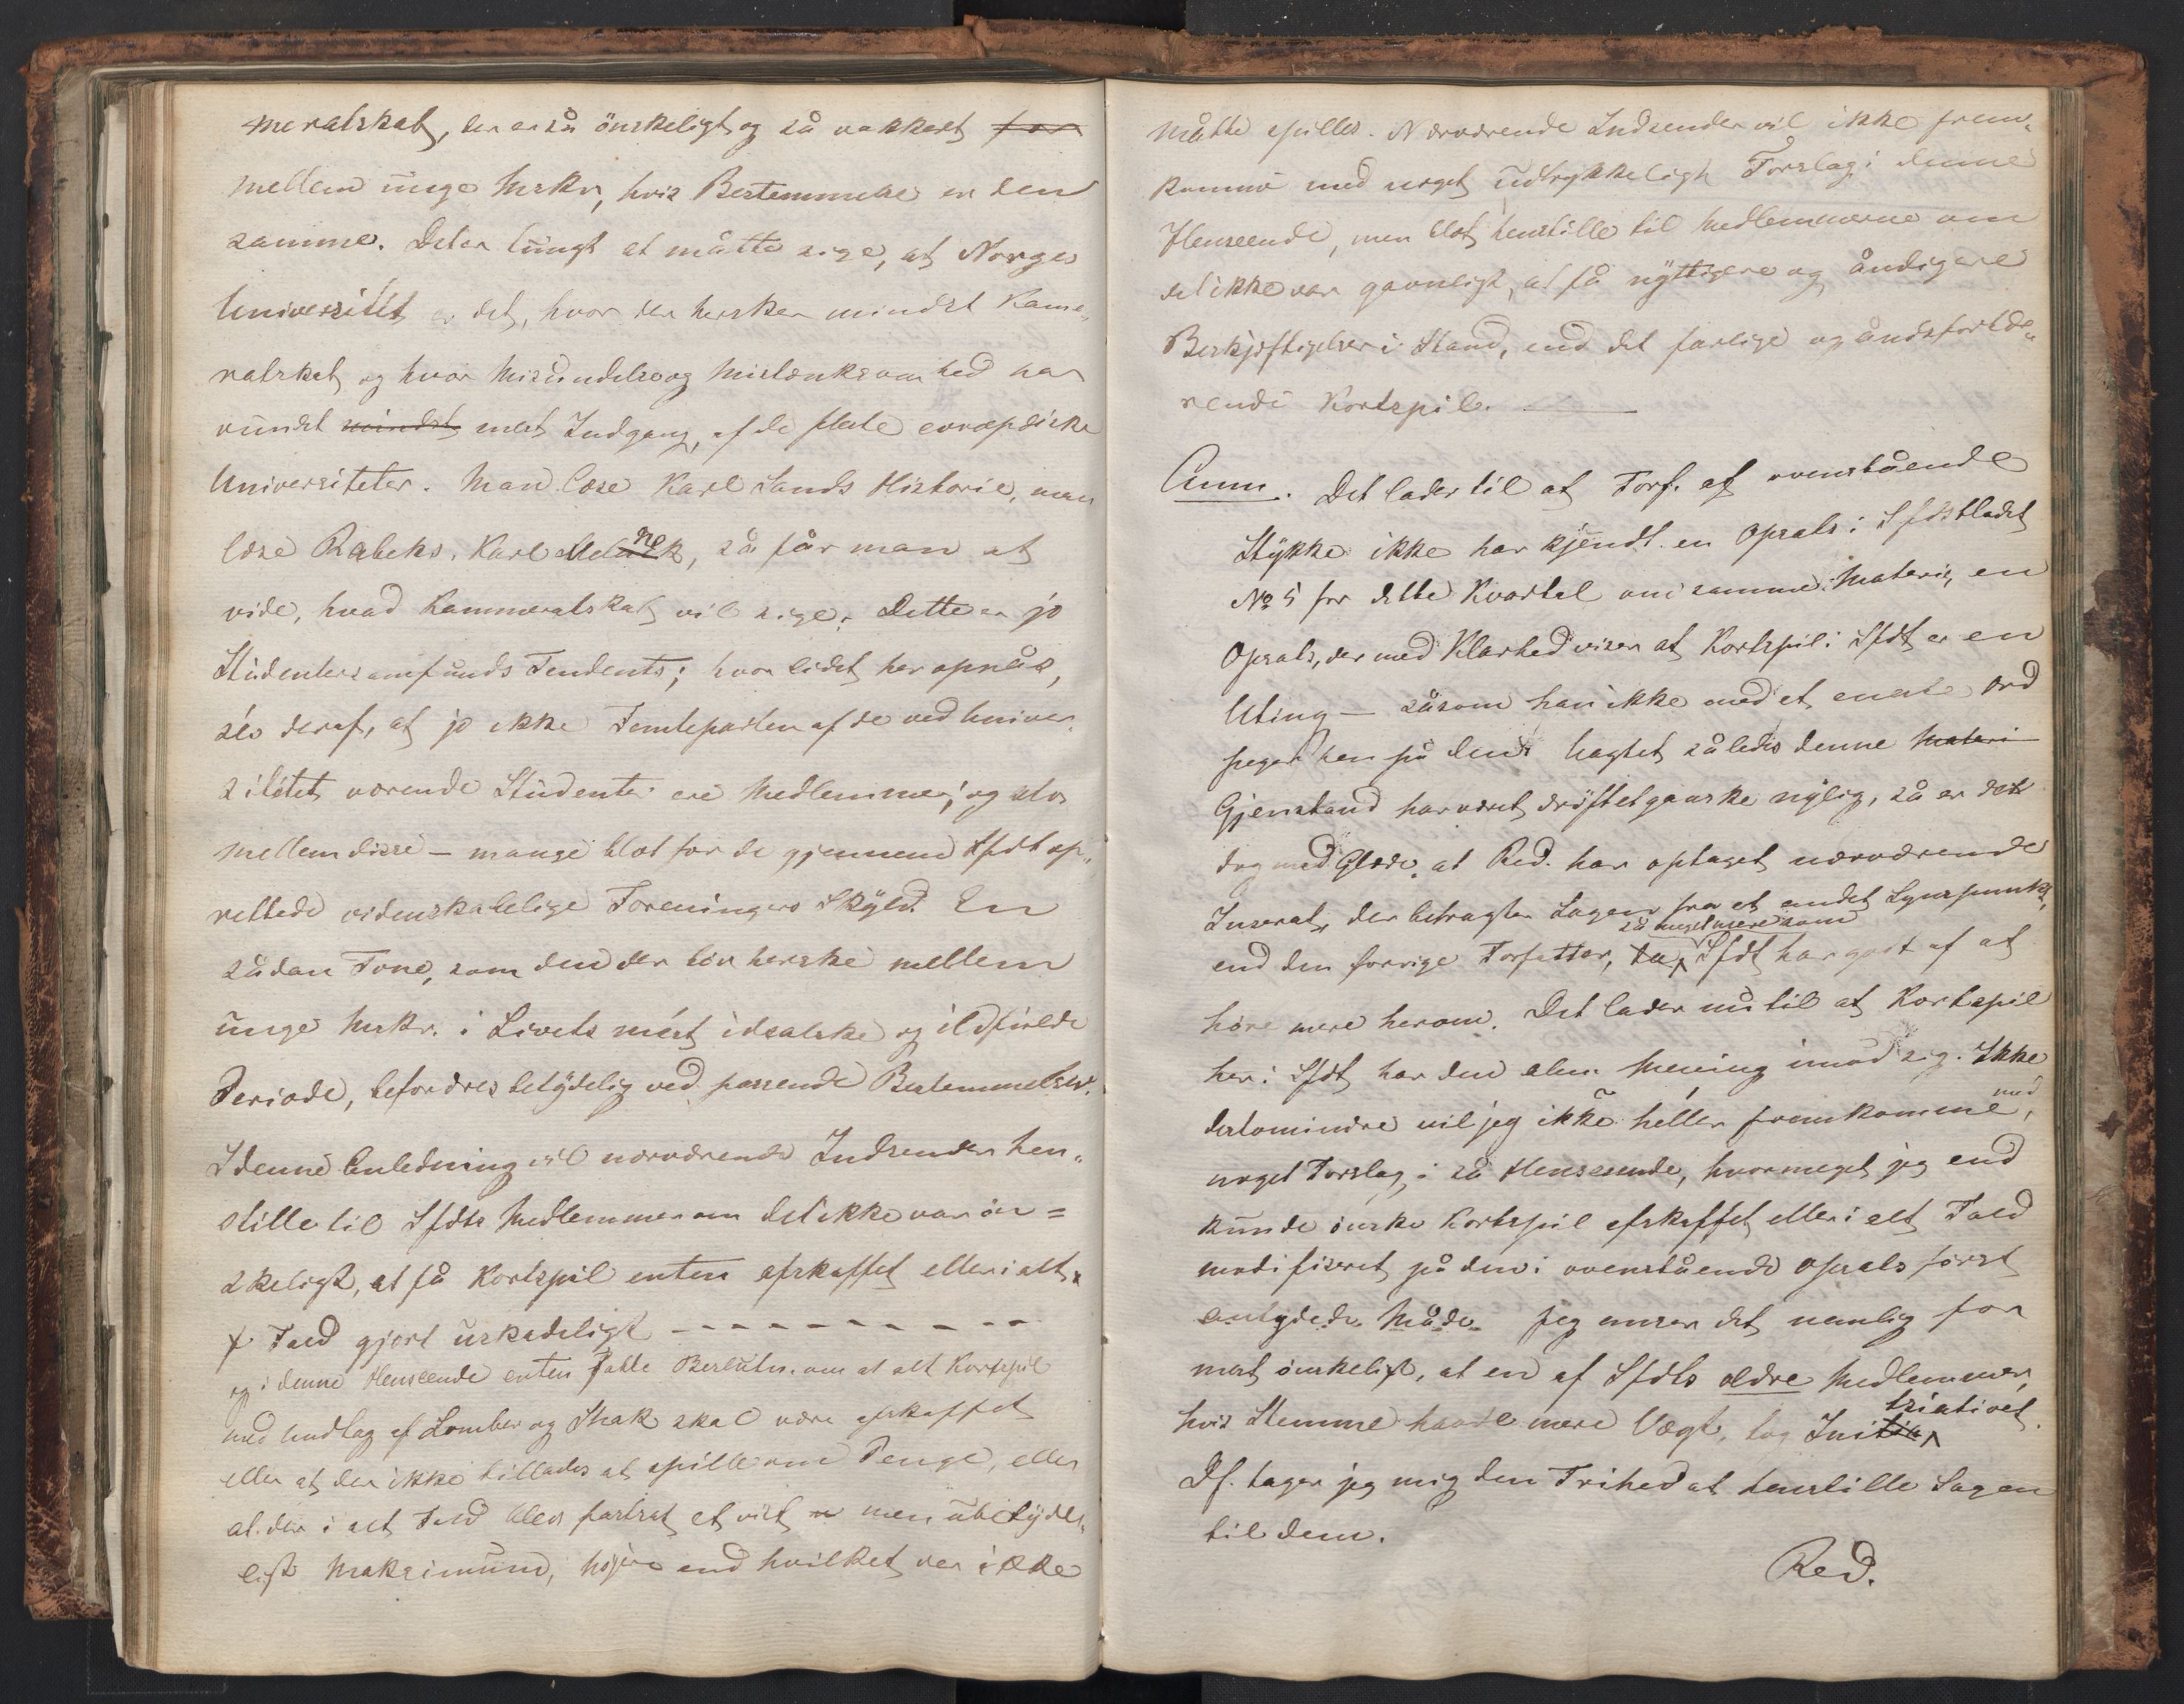 meratskab, der er så önskeligt og så vakkert for
mellem ünge Mskr, hvis Bestemmelse er den
samme. Det er tüngt at måtte sige, at Norges
Universitét er det, hvor der hersker mindst Kame„
ratskab og hvor Misündelse og Mistænksomhed har
vündet mindst mest Indgang, af de fleste evropæiske
Universiteter. Man læse Karl Sands Historie, man
læse Rabeks, Karl, så får man at
vide, hvad Kammeratskab vil sige. Dette er jo
Stüdentersamfünds Tendents; hvor lidet her opnåes,
sées deraf, at jo ikke Femteparten af de ved Univer„
sitétet værende Stüdenter ere Medlemmer, og atv
mellem disse – mange blot for de gjennem Sfdt op„
rettede videnskabelige Foreningers Skÿld. En
sådan Tone, som den der bör herske mellem
ünge Mskr. i Livets mést idealske og ildfülde
Periode, befordres betÿdelig ved passende Bestemmelser.
I denne Anledning vil nærværende Indsender hen„
stille til Sfdts Medlemmer om det ikke var ön=
skeligt, at få Kortspil enten afskaffet eller i alt
Fald gjort üskadeligt – – – – – – – – –
og i denne Henseende enten fatte Beslutn. om at alt Kortspil
med Undtag af Lomber og Shak skal være afskaffet
eller at der ikke tillades at spille om Penge, eller
at der i alt Fald blev fastsat et vist men übetÿde„
ligt Maksimüm, höjere end hvilket der ikke
måtte spilles. Nærværende Indsender vil ikke frem„
komme med noget üdtrykkeligt Forslag i denne
Henseende, men blot henstille til Medlemmerne om
det ikke var gavnligt, at få nÿttigere og åndigere
Beskjæftigelser i Stand, end det farlige og åndsfortæ„
rende Kortspil. ——
Anm. Det lader til at Forf. af ovenstående
Stÿkke ikke har kjendt en Opsats i Sfdsbladet
No 5 for dette Kvartal om samme Materie, en
Opsats, der med Klarhed viser at Kortspil i Sfdt er en
Uting – såsom han ikke med et eneste Ord
peger hen på den. Uagtet således denne Materi
Gjenstand har været dröftet ganske nÿlig, så er det
dog med Glæde, at Red. har optaget nærværende
Inserat, der betragter Sagen fra et andet Synspunkt,
end den forrige Forfatter, så meget mere som Sfdt har godt af at
höre mere herom. Det lader nu til at Kortspil
her i Sfdt har den alm. Mening imod sig. Ikke
destomindre vil jeg ikke héller fremkomme med
noget Forslag i så Henseende, hvormeget jeg end
künde önske Kortspil afskaffet eller i alt Fald
modifiseret på den i ovenstående Opsats först
antydede Måde. Jeg anser det nemlig for
mest önskeligt, at en af Sfdts ældre Medlemmer,
hvis Stemme havde mere Vægt, tog Initsiativet.
Df. tager jeg mig den Frihed at henstille Sagen
til dem.
Red.